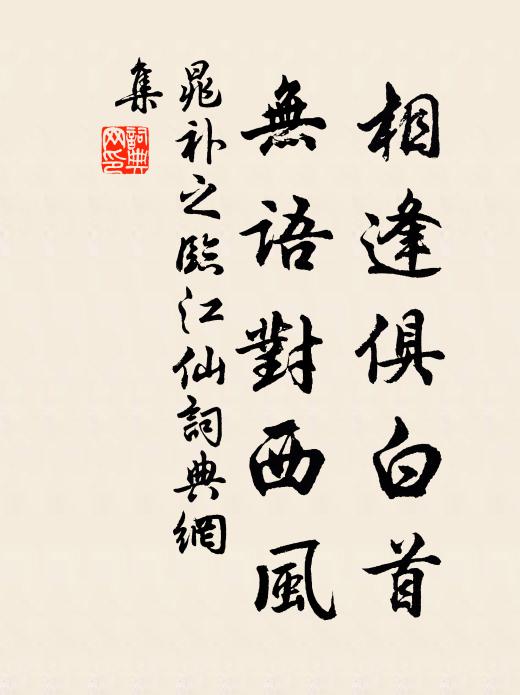 相逢俱白首
無語對西風
晁补之臨江仙詞典網
集
詞典
网印